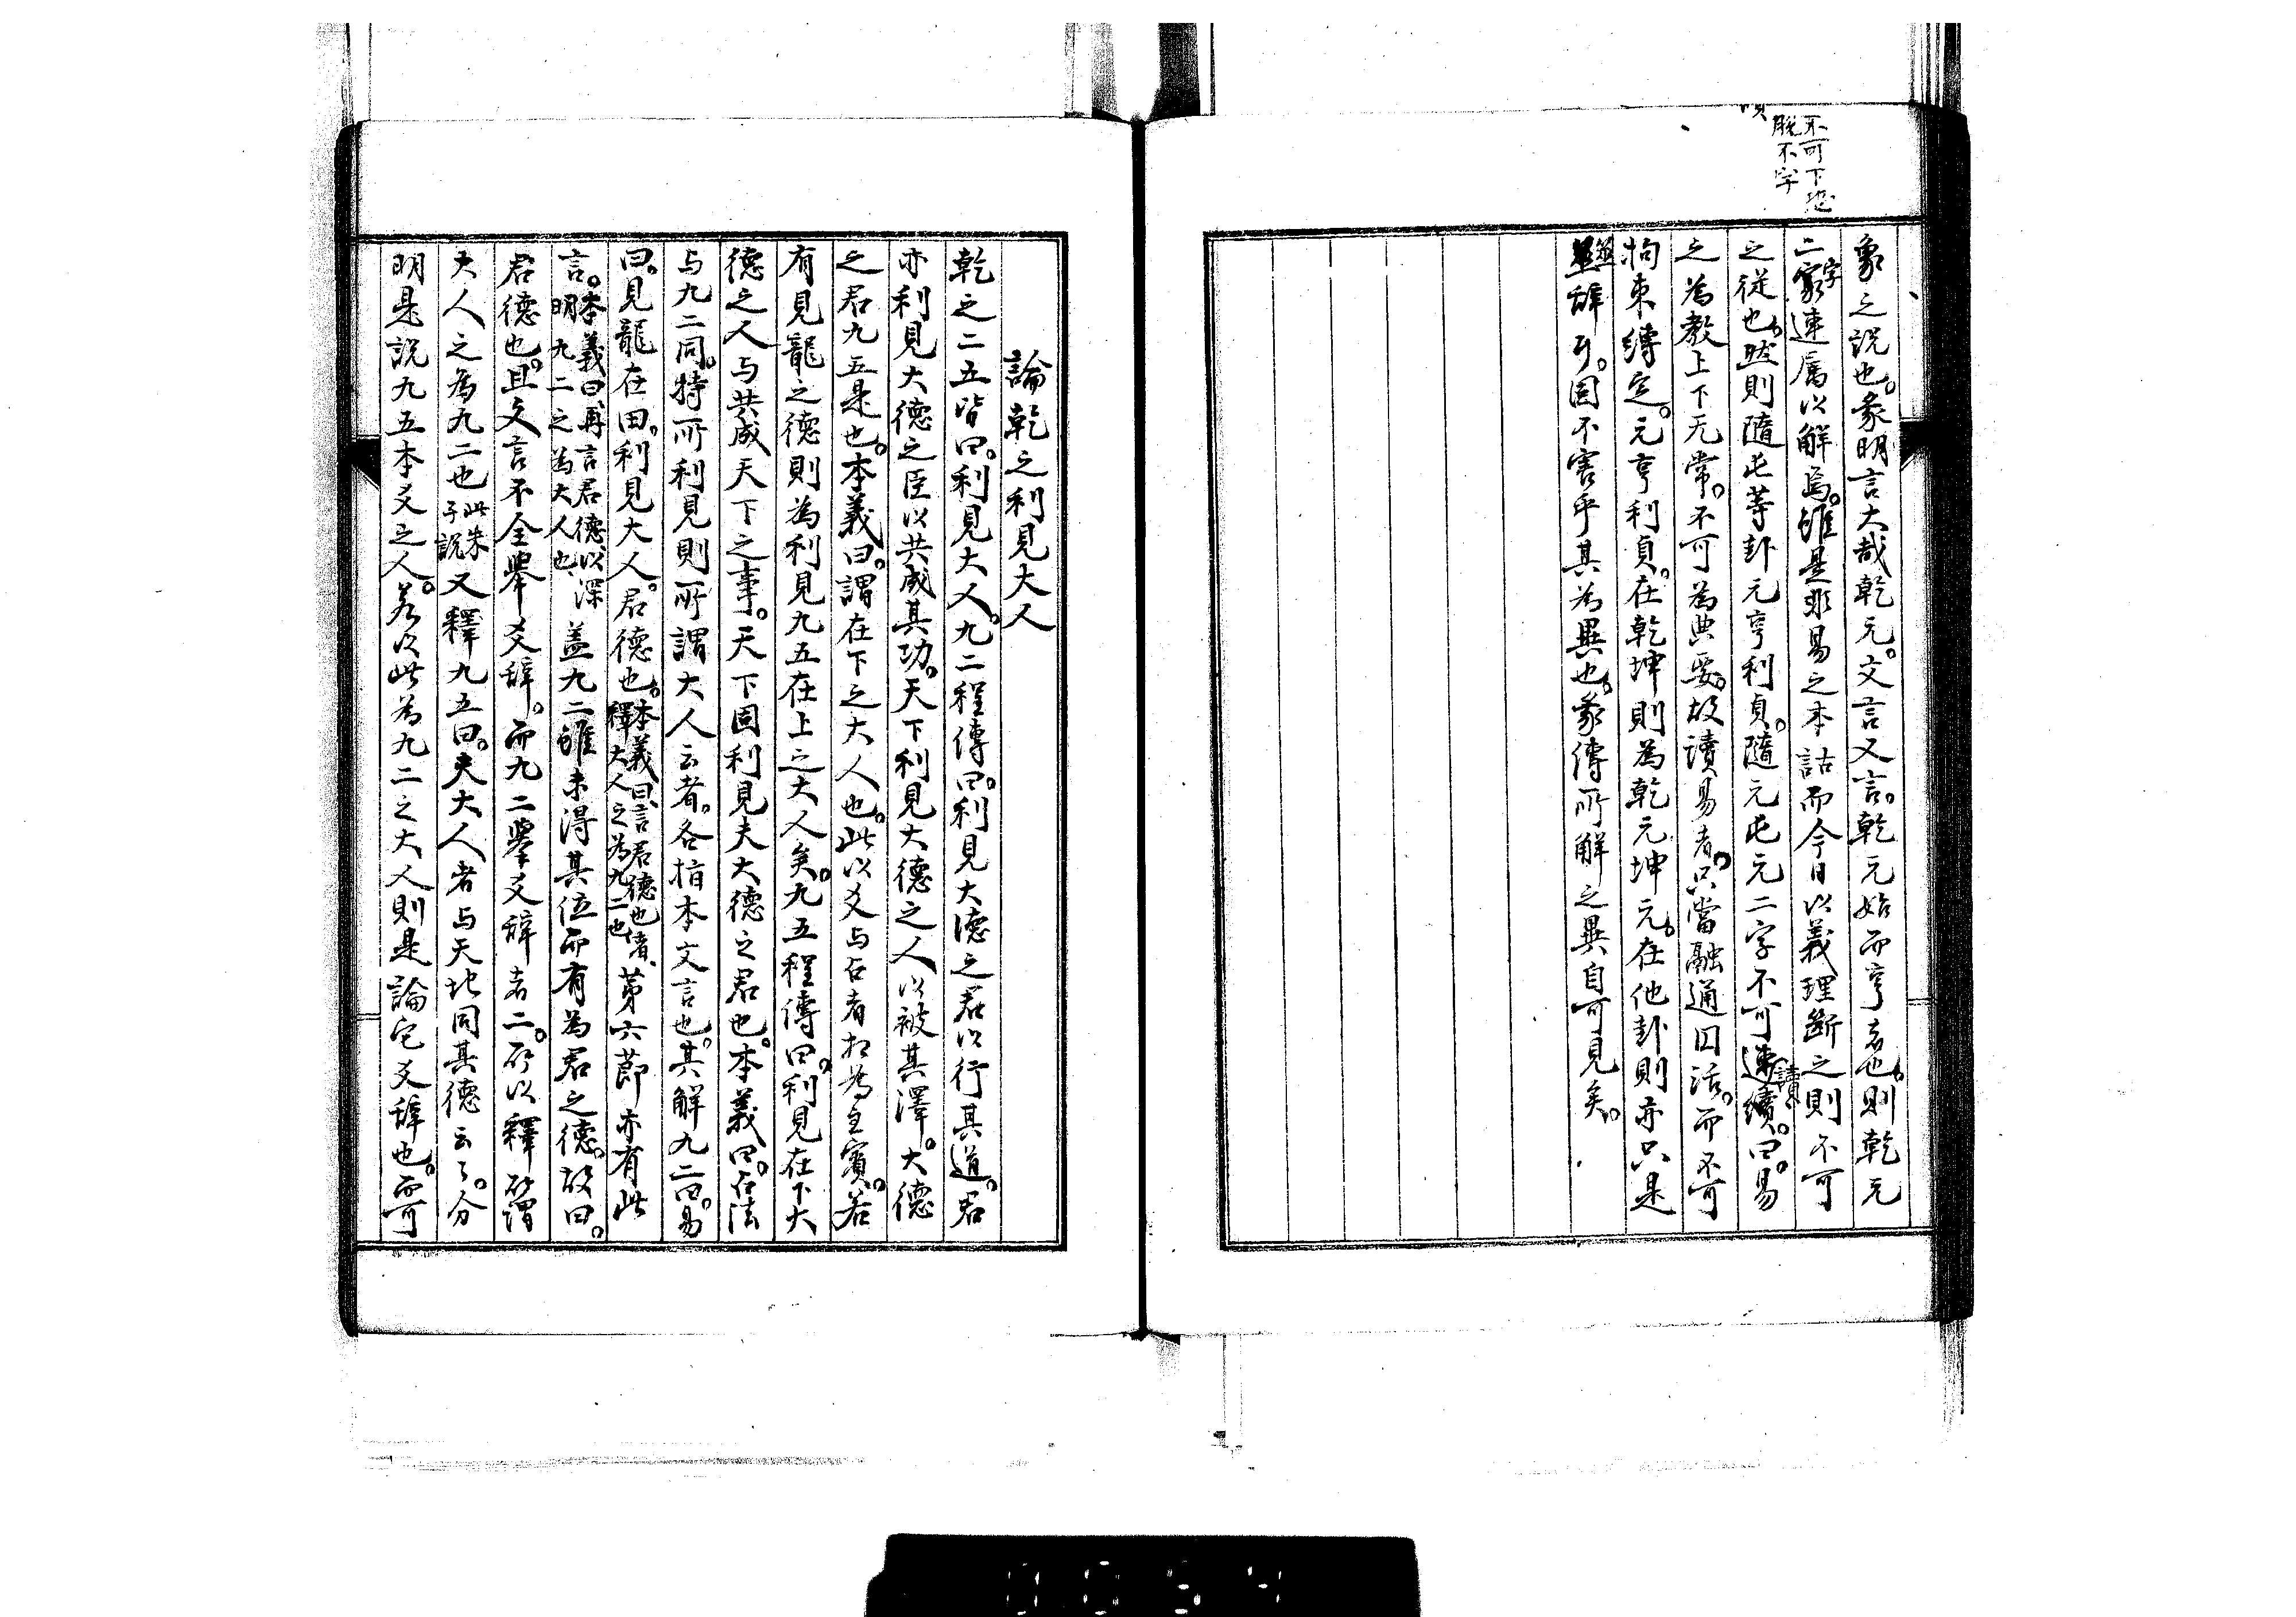 不可下恐
脱不字
彖之説也。彖明言大哉乾元。文言又言。乾元始而亨者也。則乾元
二字連属以解焉。雖是非易之本詁而今日以義理断之則不可
之従也。然則隨屯等卦元亨利貞。隨元屯元二字不可連讀。曰。易
之為教上下无常。不可為典要。故讀易者。只當融通囗活。而不可
拘束縛定。元亨利貞。在乾坤則為乾元坤元。在他卦則亦只是
辞耳。固不害乎其為異也。彖傳所解之異自可見矣。
論乾之利見大人
乾之二五皆曰。利見大人。九二程傳曰。利見大德之君以行其道。君
亦利見大德之臣以共成其功。天下利見大德之人以被其澤。大德
之君九五是也。本義曰。謂在下之大人也。此以爻与占者相為主賓。若
有見龍之德則為利見九五在上之大人矣。九五程傳曰。利見在下大
德之人与共成天下之事。天下固利見夫大德之君也。本義曰。占法
与九二同。特所利見則所謂大人云者。各指本文言也。其解九二曰。易
曰。見龍在田。利見大人。君德也。本義曰、言君德也者、
釋大人之為九二也
第六節亦有此
言。本義曰、再言君德、以深
明九二之為大人也、
盖九二雖未得其位而有為君之德。故曰。
君德也。且文言不全舉爻辞。而九二擧爻辞者二。所以釋所謂
大人之為九二也此朱
子説
又釋九五曰。夫大人者与天地同其德云々。分
明是説九五本爻之人。若以此為九二之大人則是論它爻辞也。而可